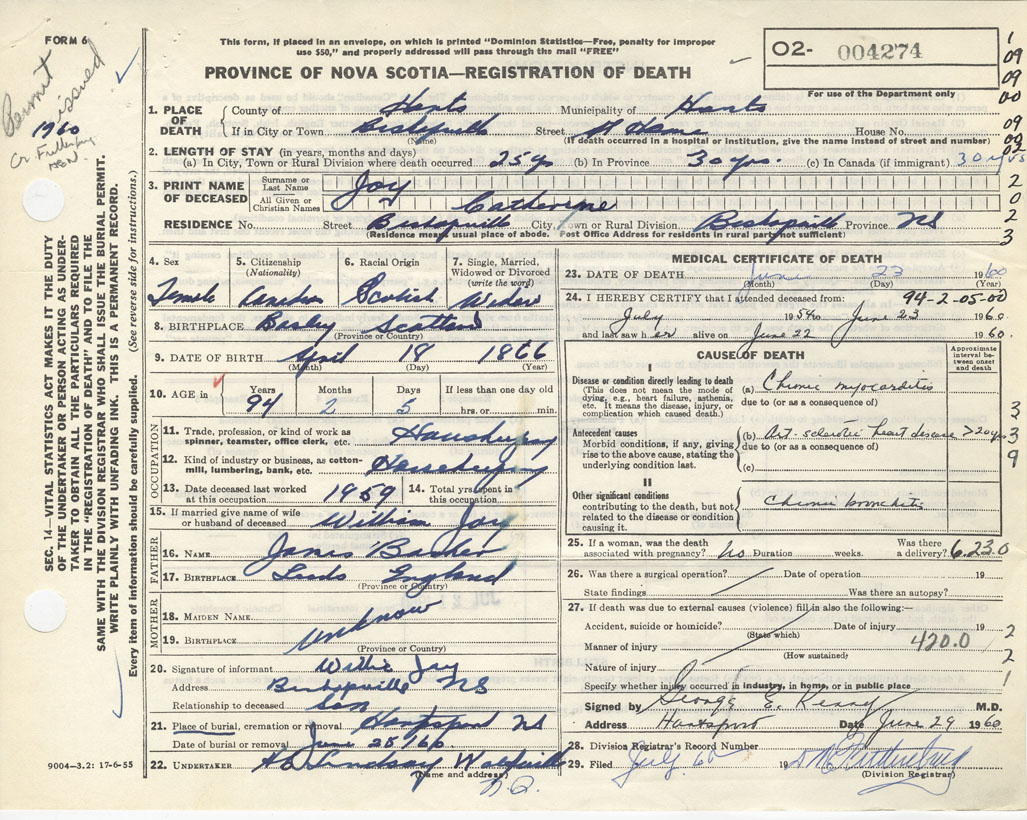 FORM 6
Permit issued
1960
This form, if placed in an envelope, on which is printed "Dominion Statistics—Free, penalty for improper
use $50," and properly addressed will pass through the mail "FREE"
PROVINCE OF NOVA SCOTIA—REGISTRATION OF DEATH
O2- 004274
For use of the Department only
SEC. 14—VITAL STATISTICS ACT MAKES IT THE DUTY
OF THE UNDERTAKER OR PERSON ACTING AS UNDER-
TAKER TO OBTAIN ALL THE PARTICULARS REQUIRED
IN THE "REGISTRATION OF DEATH" AND TO FILE THE
SAME WITH THE DIVISION REGISTRAR WHO SHALL ISSUE THE BURIAL PERMIT.
WRITE PLAINLY WITH UNFADING INK. THIS IS A PERMANENT RECORD.
Every item of information should be carefully supplied. (See reverse side for instructions.)
1. PLACE OF DEATH County of Hants Municipality of Hants
If in City or Town Bishopville Street At Home House No.
(Name) (If death occurred in a hospital or institution, give the name instead of street and number)
2. LENGTH OF STAY (in years, months and days)
(a) In City, Town or Rural Division where death occurred 25 yrs (b) In Province 30 yrs. (c) In Canada (if immigrant) 30 yrs
3. PRINT NAME OF DECEASED Surname or Last Name Joy
All Given or Christian Names Catherine
RESIDENCE No. Street Bishopville City, Town or Rural Division Bishopville Province NS
(Residence means usual place of abode. Post Office Address for residents in rural part not sufficient)
4. Sex Female
5. Citizenship (Nationality)
6. Racial Origin Scotish
7. Single, Married, Widowed or Divorced (write the word) Widow
8. BIRTHPLACE Scotland
(Province or Country)
9. DATE OF BIRTH April 18 1866
(Month) (Day) (Year)
10. AGE in Years 94 Months 2 Days 5 If less than one day old hrs. or min.
OCCUPATION
11. Trade, profession, or kind of work as spinner, teamster, office clerk, etc.
12. Kind of industry or business, as cotton-mill, lumbering, bank, etc.
13. Date deceased last worked at this occupation 1959 14. Total yrs. spent in this occupation
15. If married give name of wife or husband of deceased William Joy
FATHER
16. NAME James Barker
17. BIRTHPLACE Leeds England
(Province or Country)
MOTHER
18. MAIDEN NAME
19. BIRTHPLACE Unknow
(Province or Country)
20. Signature of informant Willie Joy
Address Bishopville NS
Relationship to deceased Son
21. Place of burial, cremation or removal Hantsport NS
Date of burial or removal June 25/60.
22. UNDERTAKER Lindsay Wolfville
(Name and address)
9004-3.2: 17-6-55
MEDICAL CERTIFICATE OF DEATH
23. DATE OF DEATH June 23 1960
(Month) (Day) (Year)
94-2-05-00
24. I HEREBY CERTIFY that I attended deceased from:
July 1954 to June 23 1960
and last saw her alive on June 22 1960.
CAUSE OF DEATH
Approximate interval between onset and death
I
Disease or condition directly leading to death (a) Chronic myocarditis
(This does not mean the mode of dying, e.g., heart failure, asthenia, etc. It means the disease, injury, or complication which caused death.)
due to (or as a consequence of)
Antecedent causes (b) Art-sclerotic heart disease >20yrs
Morbid conditions, if any, giving rise to the above cause, stating the underlying condition last.
due to (or as a consequence of)
(c)
II
Other significant conditions
contributing to the death, but not related to the disease or condition causing it.
Chronic bronchitis
25. If a woman, was the death associated with pregnancy? No Duration weeks. Was there a delivery? 6.23.0
26. Was there a surgical operation? Date of operation 19
State findings Was there an autopsy?
27. If death was due to external causes (violence) fill in also the following:—
Accident, suicide or homicide? Date of injury 19
(State which)
Manner of injury 420.0
(How sustained)
Nature of injury
Specify whether injury occurred in industry, in home, or in public place
Signed by George E. Kenny M.D.
Address Hantsport Date June 29 1960
28. Division Registrar's Record Number
29. Filed July 60 19
(Division Registrar)
1
09
09
00
09
2
0
2
3
3
3
9
2
2
1